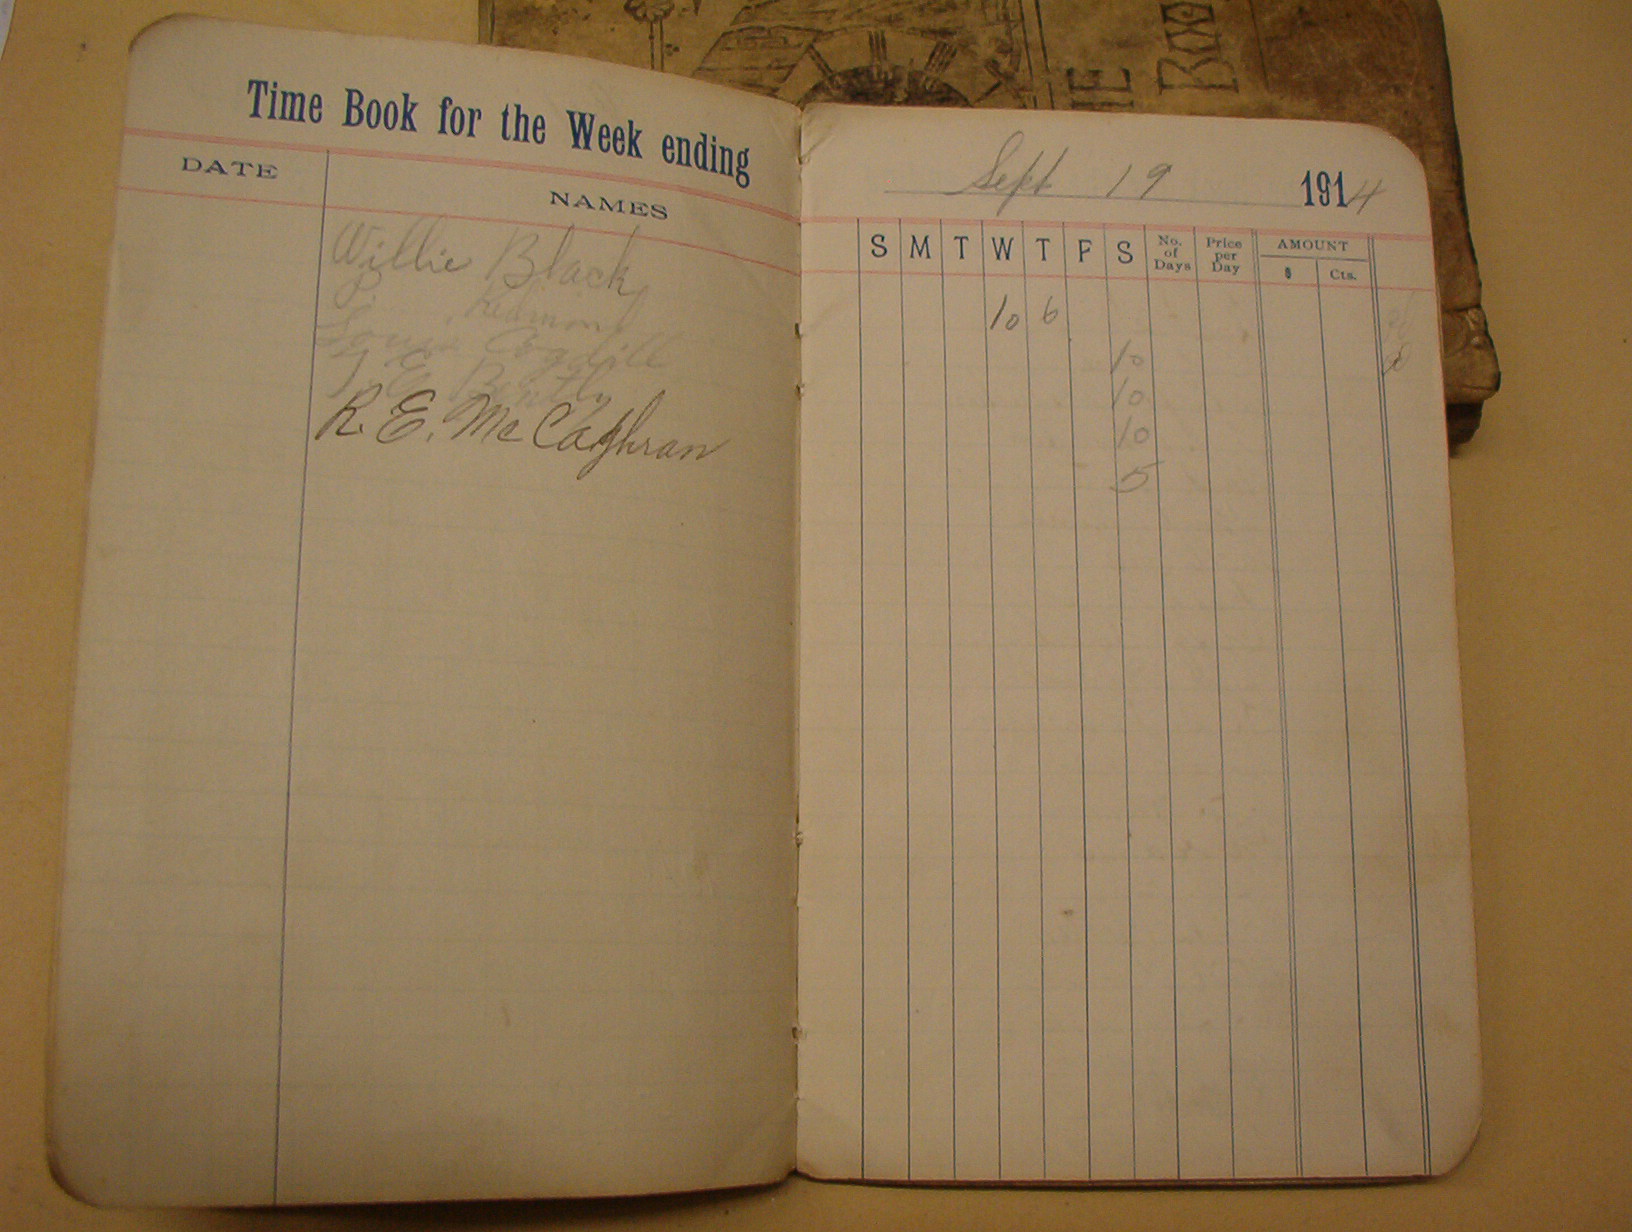 IE
BOO
Time Book for the Week ending
Sept 19 1914
DATE
NAMES
S M T W T F S No. of Days Price per Day AMOUNT
$ Cts.
Willie Black
10 6
P. Redmond
10
Louis Cogdill
10
J. E. Bently
10
R. E. McCaghran
5